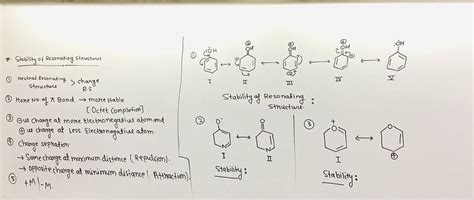 * Stability of Resonating Structures
① Neutral Resonating Structure > charge R.S
② More No. of π Bond → more stable
[Octet Completion]
③ ⊖ve charge at more Electronegative atom and
⊕ve charge at Less Electronegative atom.
④ Charge sepration
→ Same charge at maximum distance (Repulsion).
→ Opposite charge at minimum distance (Attraction).
⑤ +M/-M.
①
I
II
III
IV
V
OH
Stability of Resonating
Structure :
②
O
N
I
O
N
II
Stability :
③
O
I
O
II
Stability :